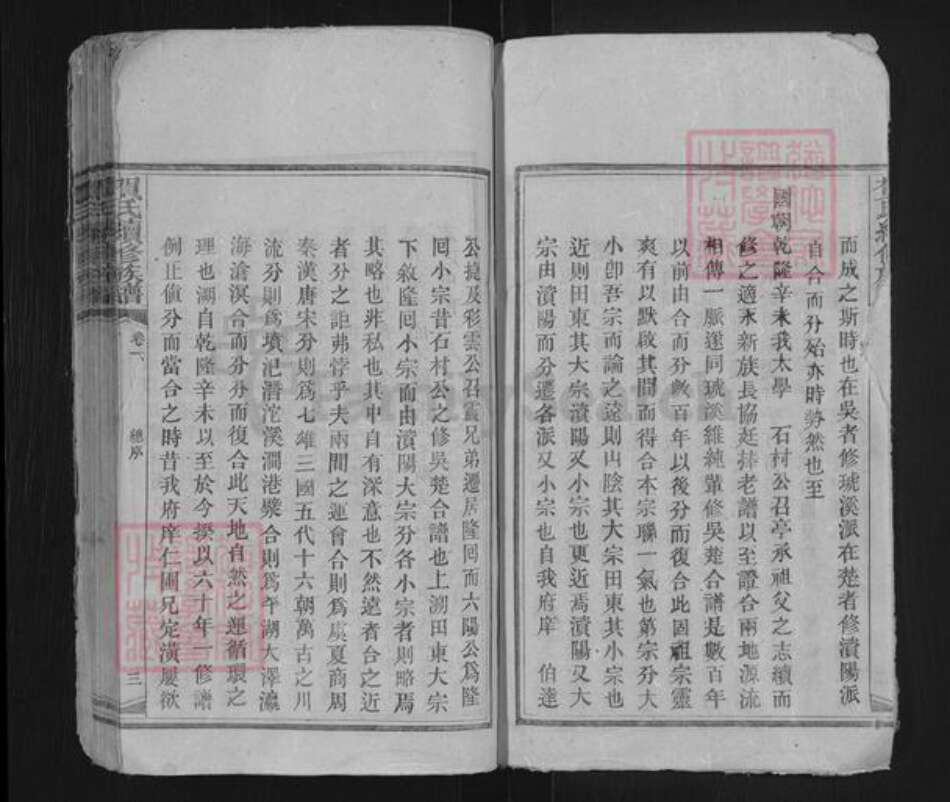 而成之斯時也在吳者修琥溪派在楚者修濆陽派
自合而分始亦時勢然也至
國朝乾隆辛未我太學 石村公召亭承祖父之志續而
修之適永新族長協廷捧老譜以至證合兩地源流
相傳一脈遂同琥溪維純輩修吳楚合譜是數百年
以前由合而分數百年以後分而復合此固祖宗靈
爽有以默啟其間而得合本宗聯一氣也第宗分大
小卽吾宗而論之遠則山陰其大宗田東其小宗也
近則田東其大宗濆陽又小宗也更近焉濆陽又大
宗由濆陽而分遷各派又小宗也自我府庠 伯達
公捷及彩雲公召震兄弟遷居隆回而六陽公爲隆
回小宗昔石村公之修吳楚合譜也上溯田東大宗
下敘隆回小宗而由濆陽大宗分各小宗者則略焉
其略也非私也其中自有深意也不然遠者合之近
者分之詎弗悖乎夫兩間之運會合則爲虞夏商周
秦漢唐宋分則爲七雄三國五代十六朝萬古之川
流分則爲墳汜潛沱溪澗港襞合則爲平湖大澤瀛
海滄溟合而分分而復合此天地自然之運循環之
理也溯自乾隆辛未以至於今揆以六十年一修譜
例正值分而當合之時昔我府庠仁圃兄定潢屢欲
賀氏續修族譜
卷一
總序
三